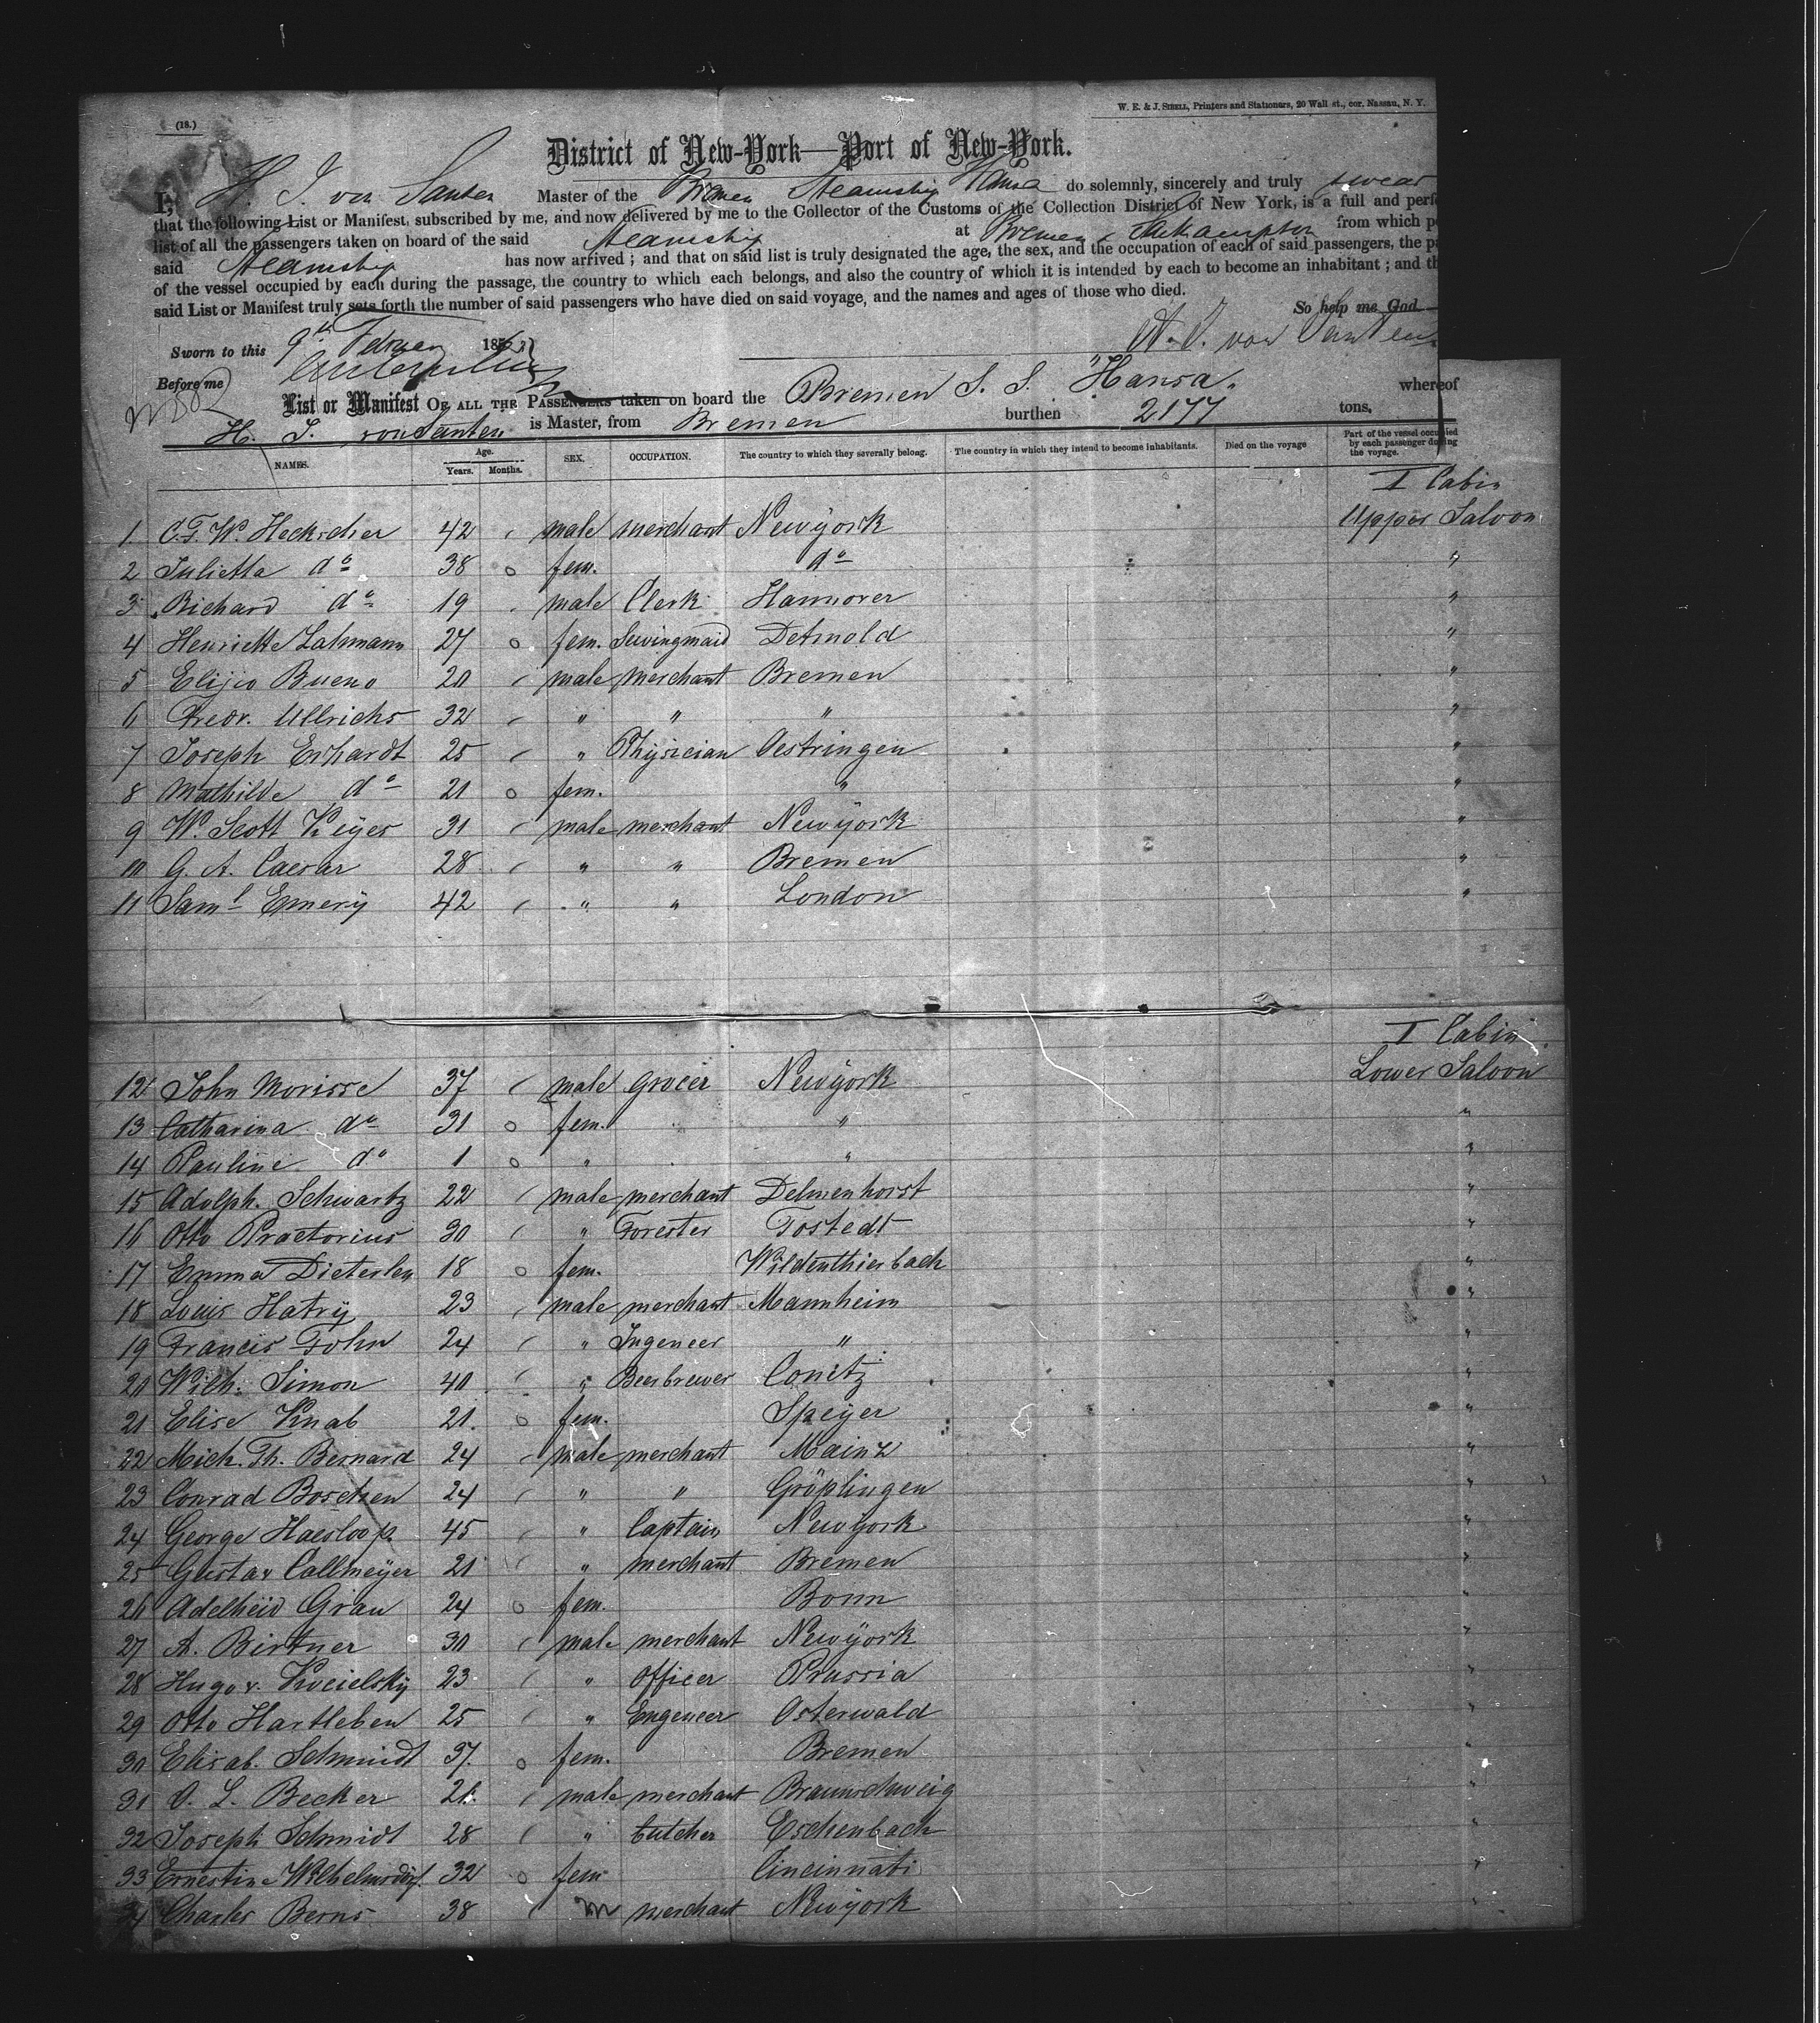 W. E. & J. SIBELL, Printers and Stationers, 20 Wall st., cor. Nassau, N. Y.
(18.)
District of New-York—Port of New-York.
I, H. J. von Santen Master of the Bremen Steamship Hansa do solemnly, sincerely and truly swear
that the following List or Manifest, subscribed by me, and now delivered by me to the Collector of the Customs of the Collection District of New York, is a full and perfe
list of all the passengers taken on board of the said Steamship at Bremen & Southampton from which po
said Steamship has now arrived; and that on said list is truly designated the age, the sex, and the occupation of each of said passengers, the pa
of the vessel occupied by each during the passage, the country to which each belongs, and also the country of which it is intended by each to become an inhabitant; and th
said List or Manifest truly sets forth the number of said passengers who have died on said voyage, and the names and ages of those who died.
So help me God
Sworn to this 9th 186 H. J. von Santen
Before me
List or Manifest OF ALL THE PASSENGERS taken on board the Bremen S. S. "Hansa" whereof
H. J. von Santen is Master, from Bremen burthen 2177 tons.
NAMES. Age. Years. Months. SEX. OCCUPATION. The country to which they severally belong. The country in which they intend to become inhabitants. Died on the voyage Part of the vessel occupied by each passenger during the voyage.
I Cabin
1 C.F.W. Heckscher 42 male merchant Newyork Upper Saloon
2 Julietta do 38 fem. do "
3 Richard do 19 male Clerk Hannover "
4 Henriette Lahmann 27 fem. Sewingmaid Detmold "
5 Elijio Bueno 20 male merchant Bremen "
6 Fredr. Ullrichs 32 " " " "
7 Joseph Erhardt 25 " Physician Oestringen "
8 Mathilde do 21 fem. " "
9 W. Scott Keyes 31 male merchant Newyork "
10 G. A. Caesar 28 " " Bremen "
11 Saml Emery 42 " " London "
I Cabin
12 John Morisse 37 male grocer Newyork Lower Saloon
13 Catharina do 31 fem. " "
14 Pauline do 1 " " "
15 Adolph. Schwartz 22 male merchant Delmenhorst "
16 Otto Praetorius 30 " Forester Tostedt "
17 Emma Dieterlen 18 fem. Wildenthierbach "
18 Louis Hatry 23 male merchant Mannheim "
19 Francis Fohn 24 " Ingeneer " "
20 Wilh. Simon 40 " Beerbrewer Conitz "
21 Elise Knab 21 fem. Speyer "
22 Mich. Th. Bernard 24 male merchant Mainz "
23 Conrad Boschen 24 " " Gröplingen "
24 George Haesloop 45 " Captain Newyork "
25 Gustav Callmeyer 21 " merchant Bremen "
26 Adelheid Grau 24 fem. Bonn "
27 A. Birtner 30 male merchant Newyork "
28 Hugo v. Kocielsky 23 " officer Prussia "
29 Otto Hartleben 25 " Engeneer Osterwald "
30 Elisab. Schmidt 37 fem. Bremen "
31 O. L. Becker 21 male merchant Braunschweig "
32 Joseph Schmidt 28 " butcher Eschenbach "
33 Ernestine Wilhelmsdörf. 32 fem Cincinnati "
34 Charles Berns 38 m merchant Newyork "